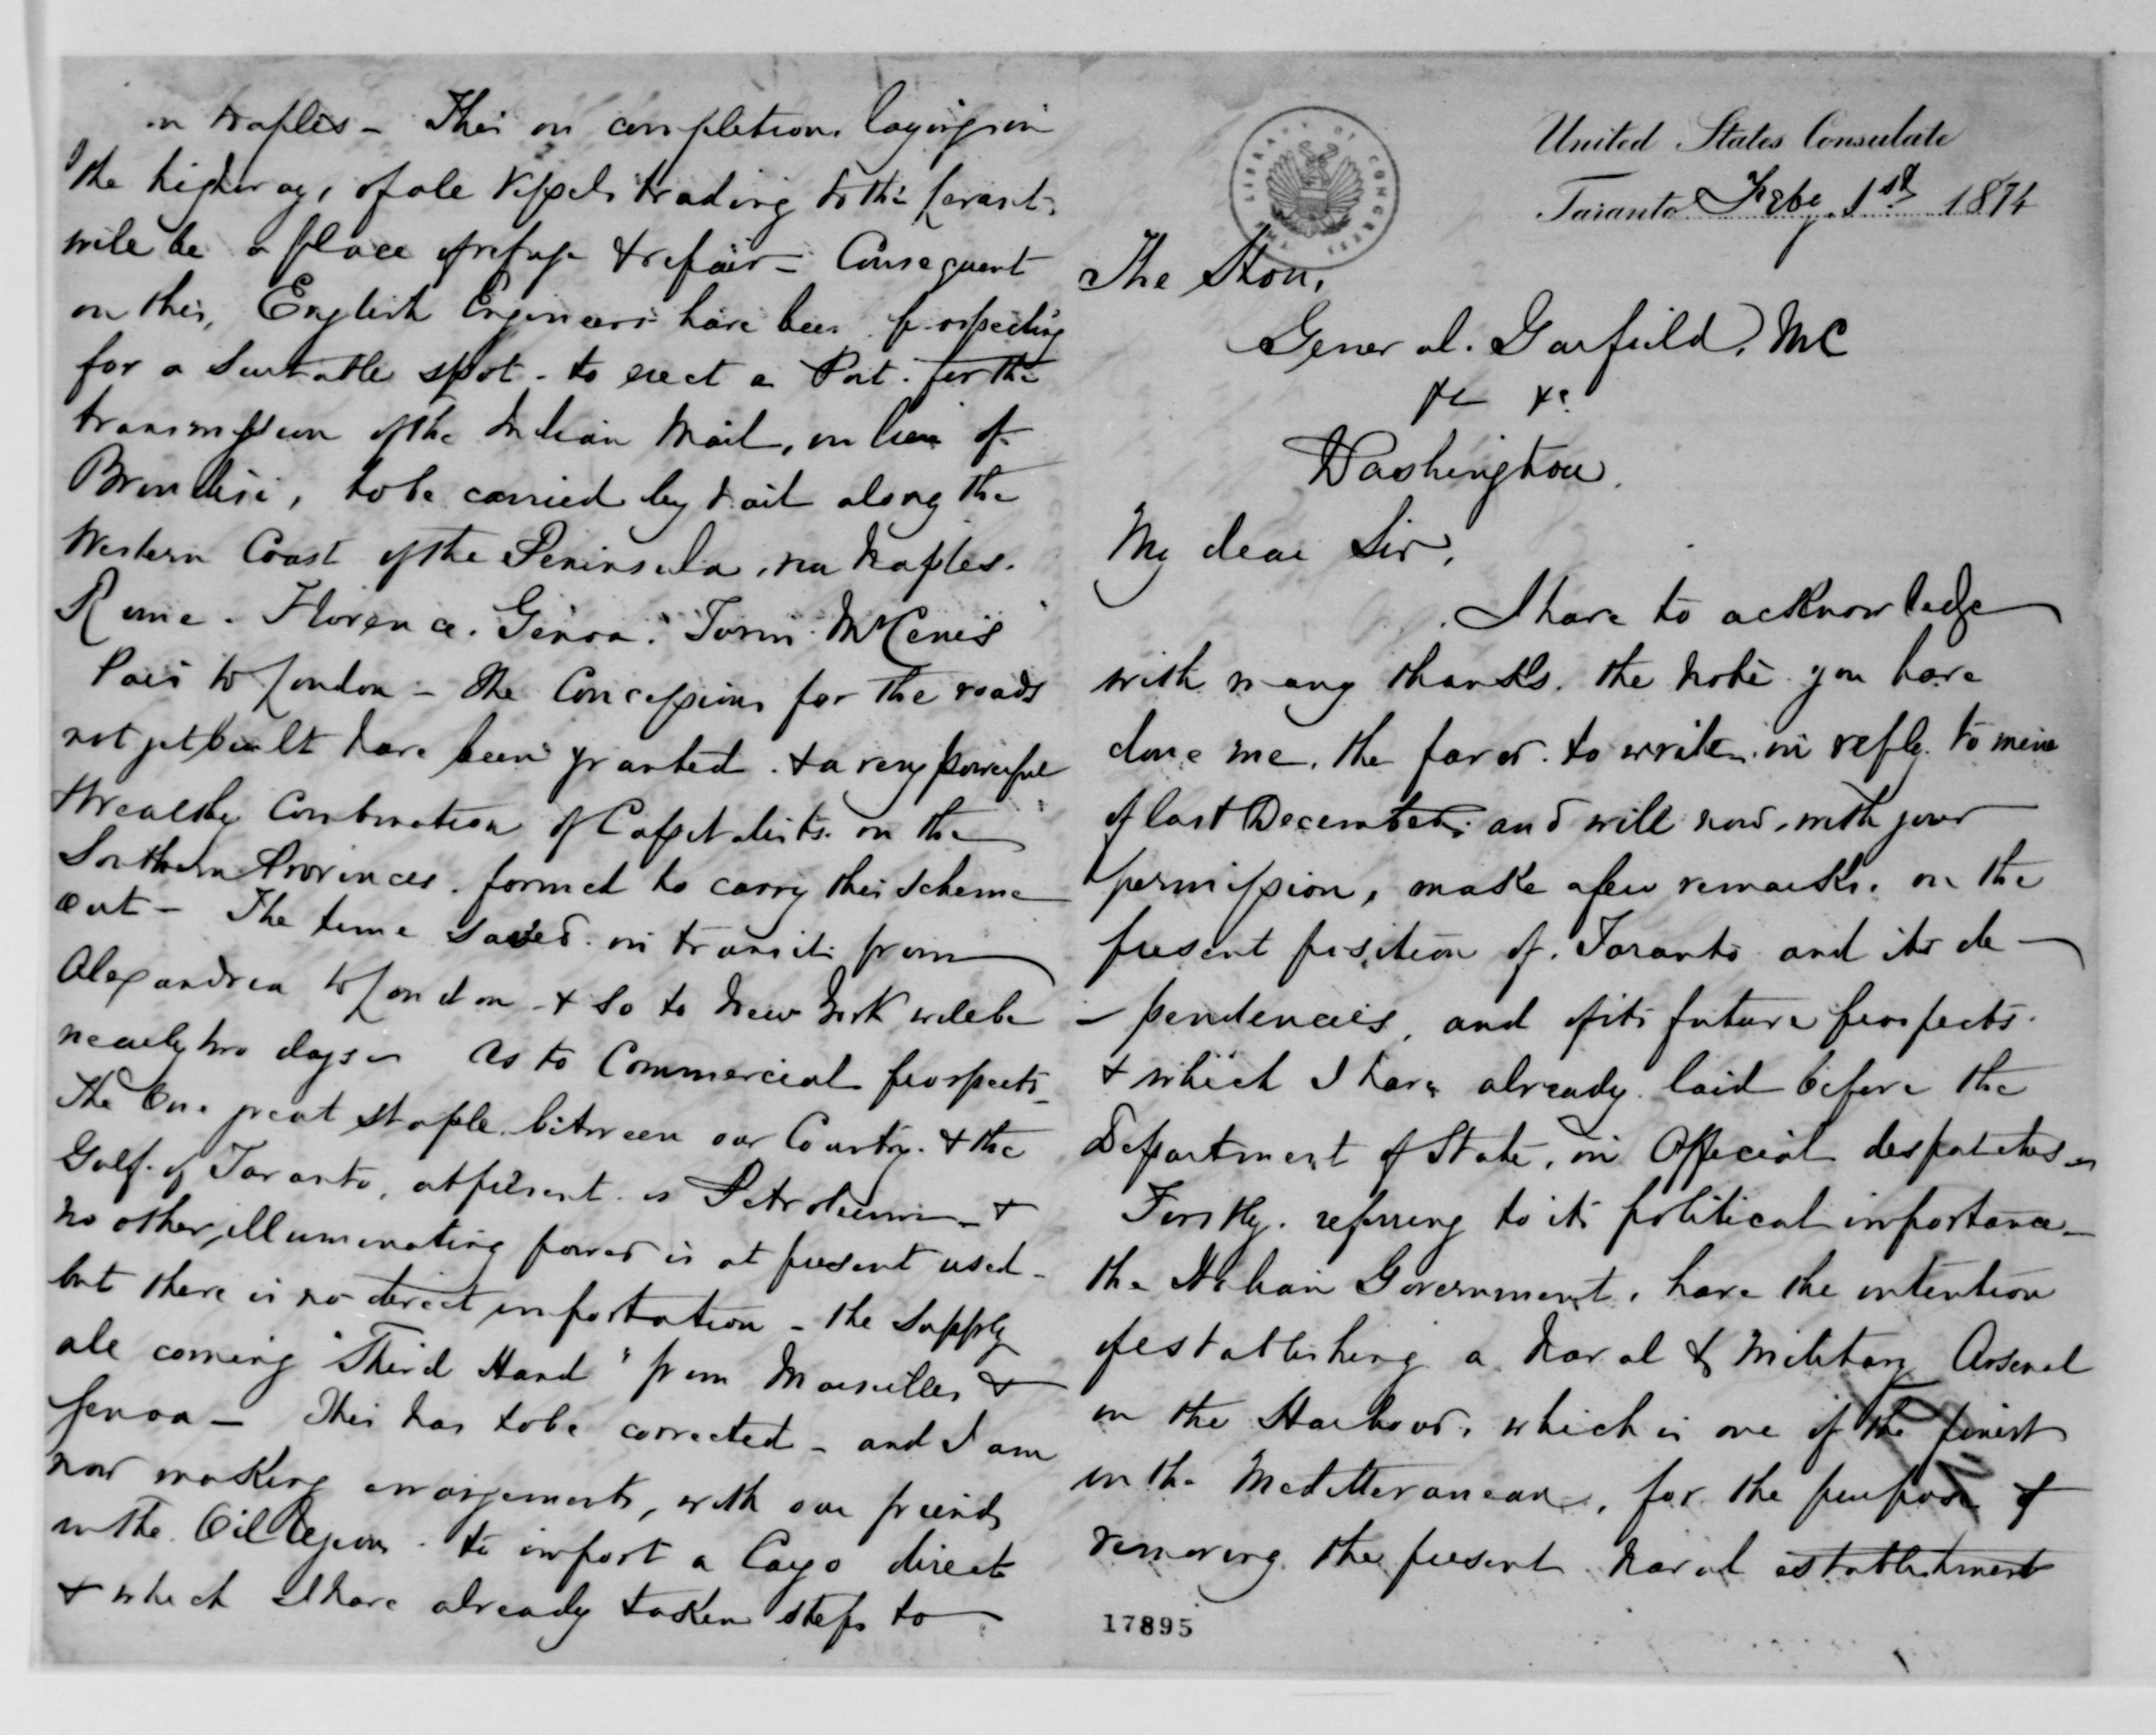 United States Consulate
Taranto Feby 1st 1874
The Hon.
General. Garfield, MC
&c &c
Washington.
My dear Sir,
I have to acknowledge
with many thanks. the note you have
done me, the favor. to write. in reply. to mine
of last December. and will now, with your
permission, make a few remarks. on the
present position of. Taranto and its de-
-pendencies, and of its future prospects.
& which I have already laid before the
Department of State, in Official despatches -
Firstly. referring to its political importance -
the Italian Government, have the intention
of establishing a Naval & Military Arsenal
in the Harbour, which is one of the finest
in the Meditteranean, for the purpose of
removing the present Naval establishment
17895
in Naples - This on completion, laying in
the highway, of all vessels trading to the Levant,
will be a place of refuge & repair - Consequent
on this, English Engineers have been prospecting
for a suitable spot - to erect a Port. for the
transmission of the Indian Mail, in lieu of
Brindisi, to be carried by rail along the
Western Coast of the Peninsula, via Naples.
Rome. Florence. Genoa. Turin. Mt Cenis
Paris to London - The Concessions for the roads
not yet built have been granted. & a very powerful
& wealthy Combination of Capitalists in the
Southern Provinces. formed to carry this scheme
out - The time saved in transit from
Alexandria to London & so to New York will be
nearly two days - As to Commercial prospects -
The One great staple between our Country. & the
Gulf. of Taranto, at present is Petroleum - &
no other illuminating power is at present used -
but there is no direct importation - the supply
all coming "Third Hand" from Marseilles &
Genoa - This has to be corrected - and I am
now making arrangements, with our friends
in the Oil Regions - to import a Cargo direct
& which I have already taken steps to
LIBRARY OF CONGRESS